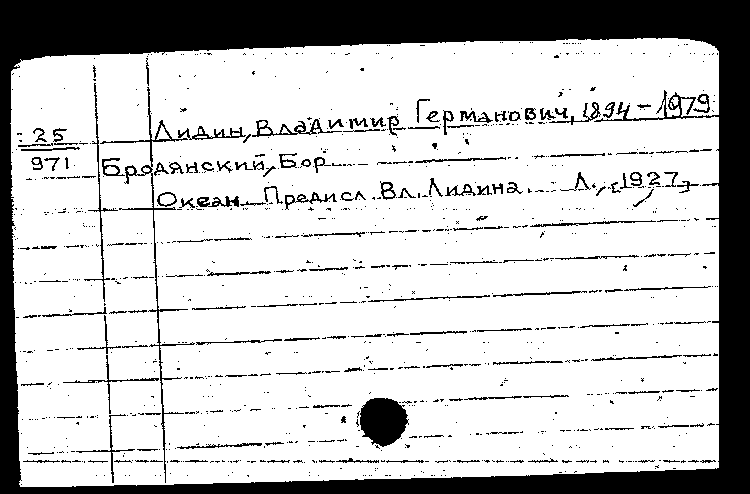 25
971
Лидин, Владимир Германович, 1894-1979
Бродянский, Бор
Океан. Предисл. Вл. Лидина. Л., [1927]